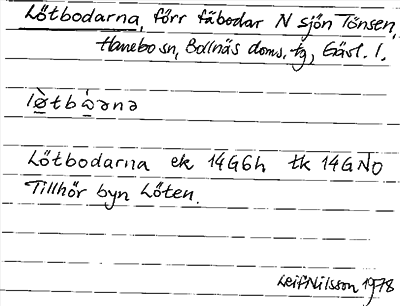 Lötbodarna, förr fäbodar N sjön Tönsen,
Hanebo sn, Bollnäs doms. tg, Gävl. l.
lø̀tbɷ̀ərnə
Lötbodarna ek 14G6h tk 14GNO
Tillhör byn Löten.
Leif Nilsson 1978